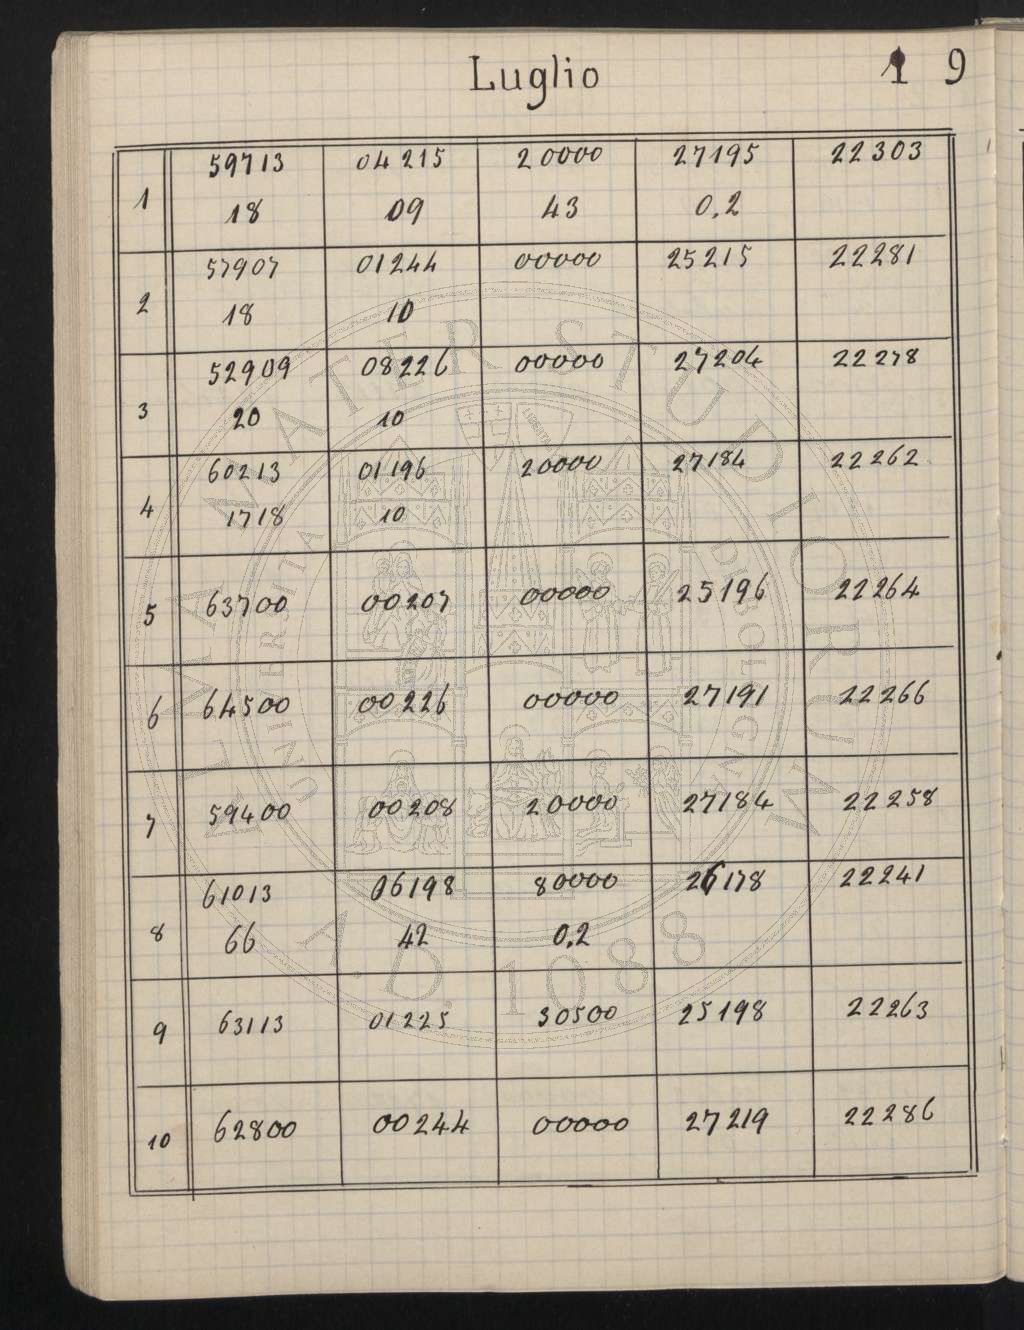 Luglio 19
1 59713 04215 20000 27195 22303
18 09 43 0,2
2 57907 01244 00000 25215 22281
18 10
3 52909 08226 00000 27204 22278
20 10
4 60213 01196 20000 27184 22262
1718 10
5 63700 00207 00000 25196 22264
6 64500 00226 00000 27191 22266
7 59400 00208 20000 27184 22258
8 61013 06198 80000 26178 22241
66 42 0,2
9 63113 01225 30500 25198 22263
10 62800 00244 00000 27219 22286
ALMA MATER STUDIORUM
A.D. 1088